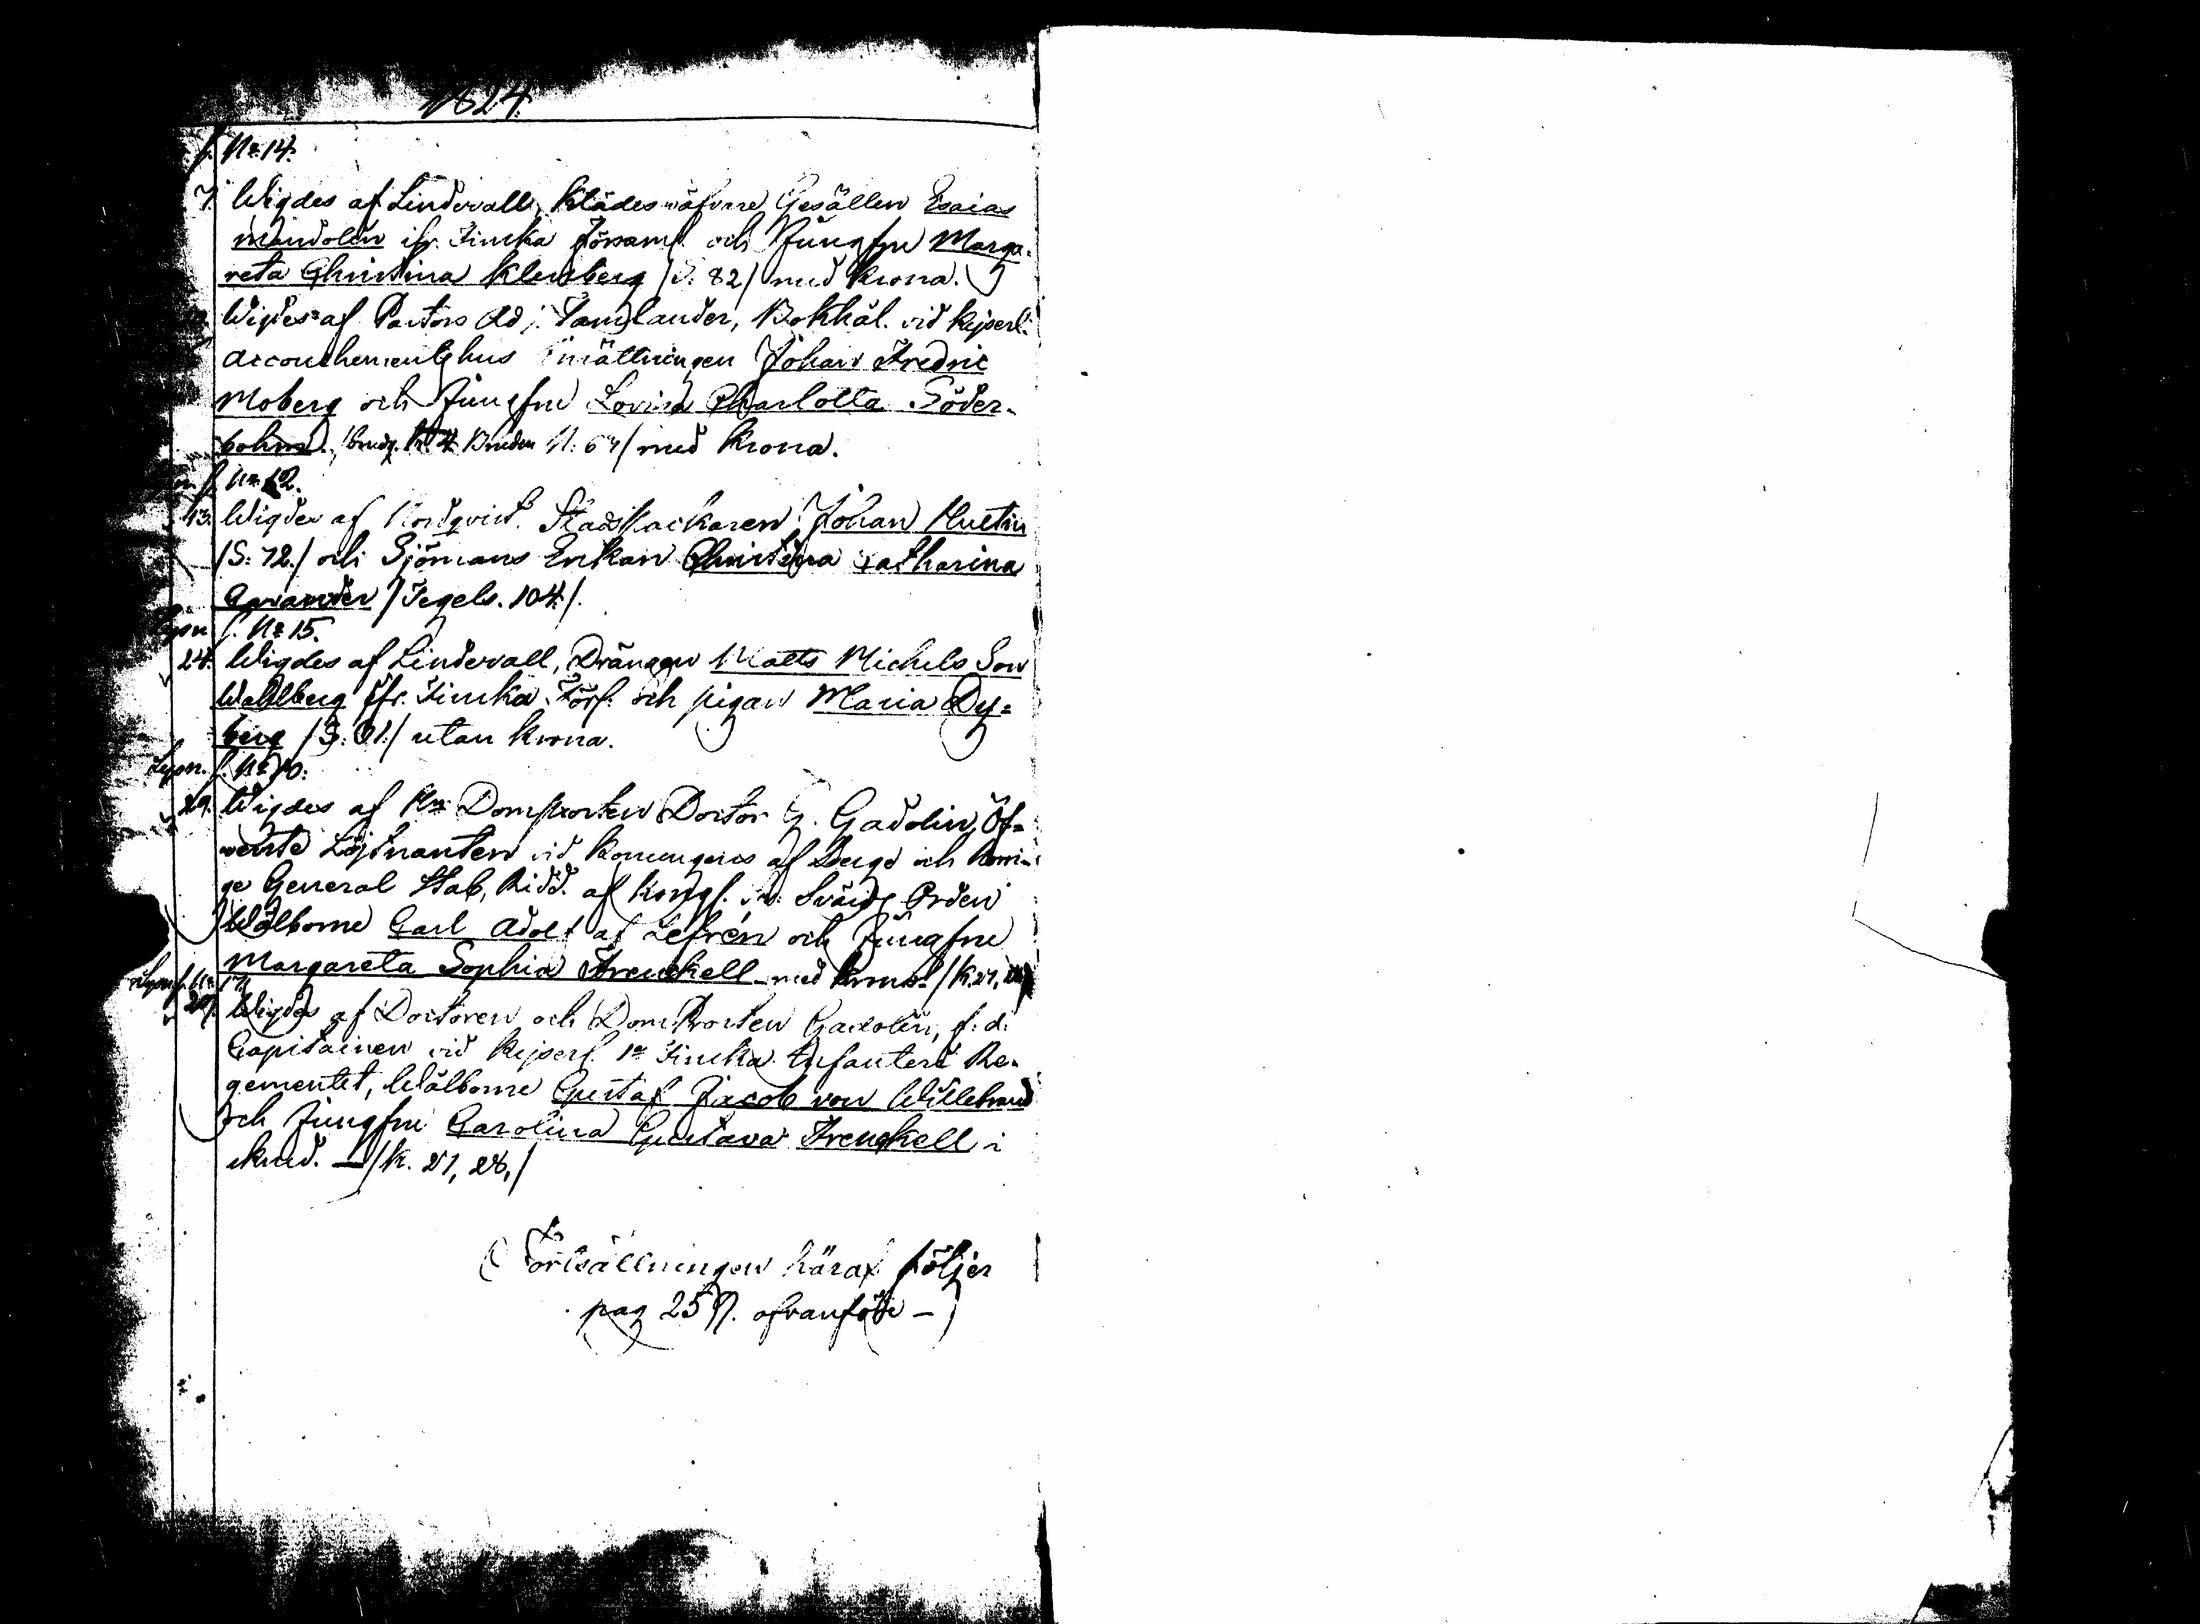 1824.
f. No 14.
7. Wigdes af Lindevall, Klädeswäfvare Gesällen Esaias
Mandolin ifr. Finska Församl. och Jungfru Marga-
reta Christina Klenberg /S: 82/ med Krona.
Wigdes af Pastors Adj. Lander, Bokhål. vid Kejserl.
Accouchementshus inrättningen Johan Fredric
Moberg och Jungfru Lovisa Charlotta Söder-
bohm. Bruden N: 67/ med Krona.
f. No 12.
13. Wigdes af Nordqvist. Stadshackaren Johan
/S: 72./ och Sjömans Enkan Christina Catharina
/Tegels. 104./
Lysn. f. No 15.
24. Wigdes af Lindevall, Drängen Matts Michels Son
Wahlberg ifr. Finska Förs. och pigan Maria Dy=
berg /S: 61:/ utan Krona.
Lysn. f. No 10.
29. Wigdes af Hr Domprosten Doctor G. Gadolin, Öf-
werste Löjtnanten vid Konungens af Sverge och Norri-
ge General Stab, Ridd. af Kongl. Sv. Svärds Orden
Wälborne Carl Adolf af Lefrén och Jungfru
Margareta Sophia Frenckell med Krona /K. 27,
Lysn. f. No 17.
29. Wigdes af Doctoren och DomProsten Gadolin, f. d.
Capitainen vid Kejserl. 1a Finska Infanterie Re-
gementet, Wälborne Gustaf Jacob von Willebrand
och Jungfru Carolina Gustava Frenckell i
—/K. 27, 28,/
(Fortsättningen häraf följer
pag 257. ofvanföre —)